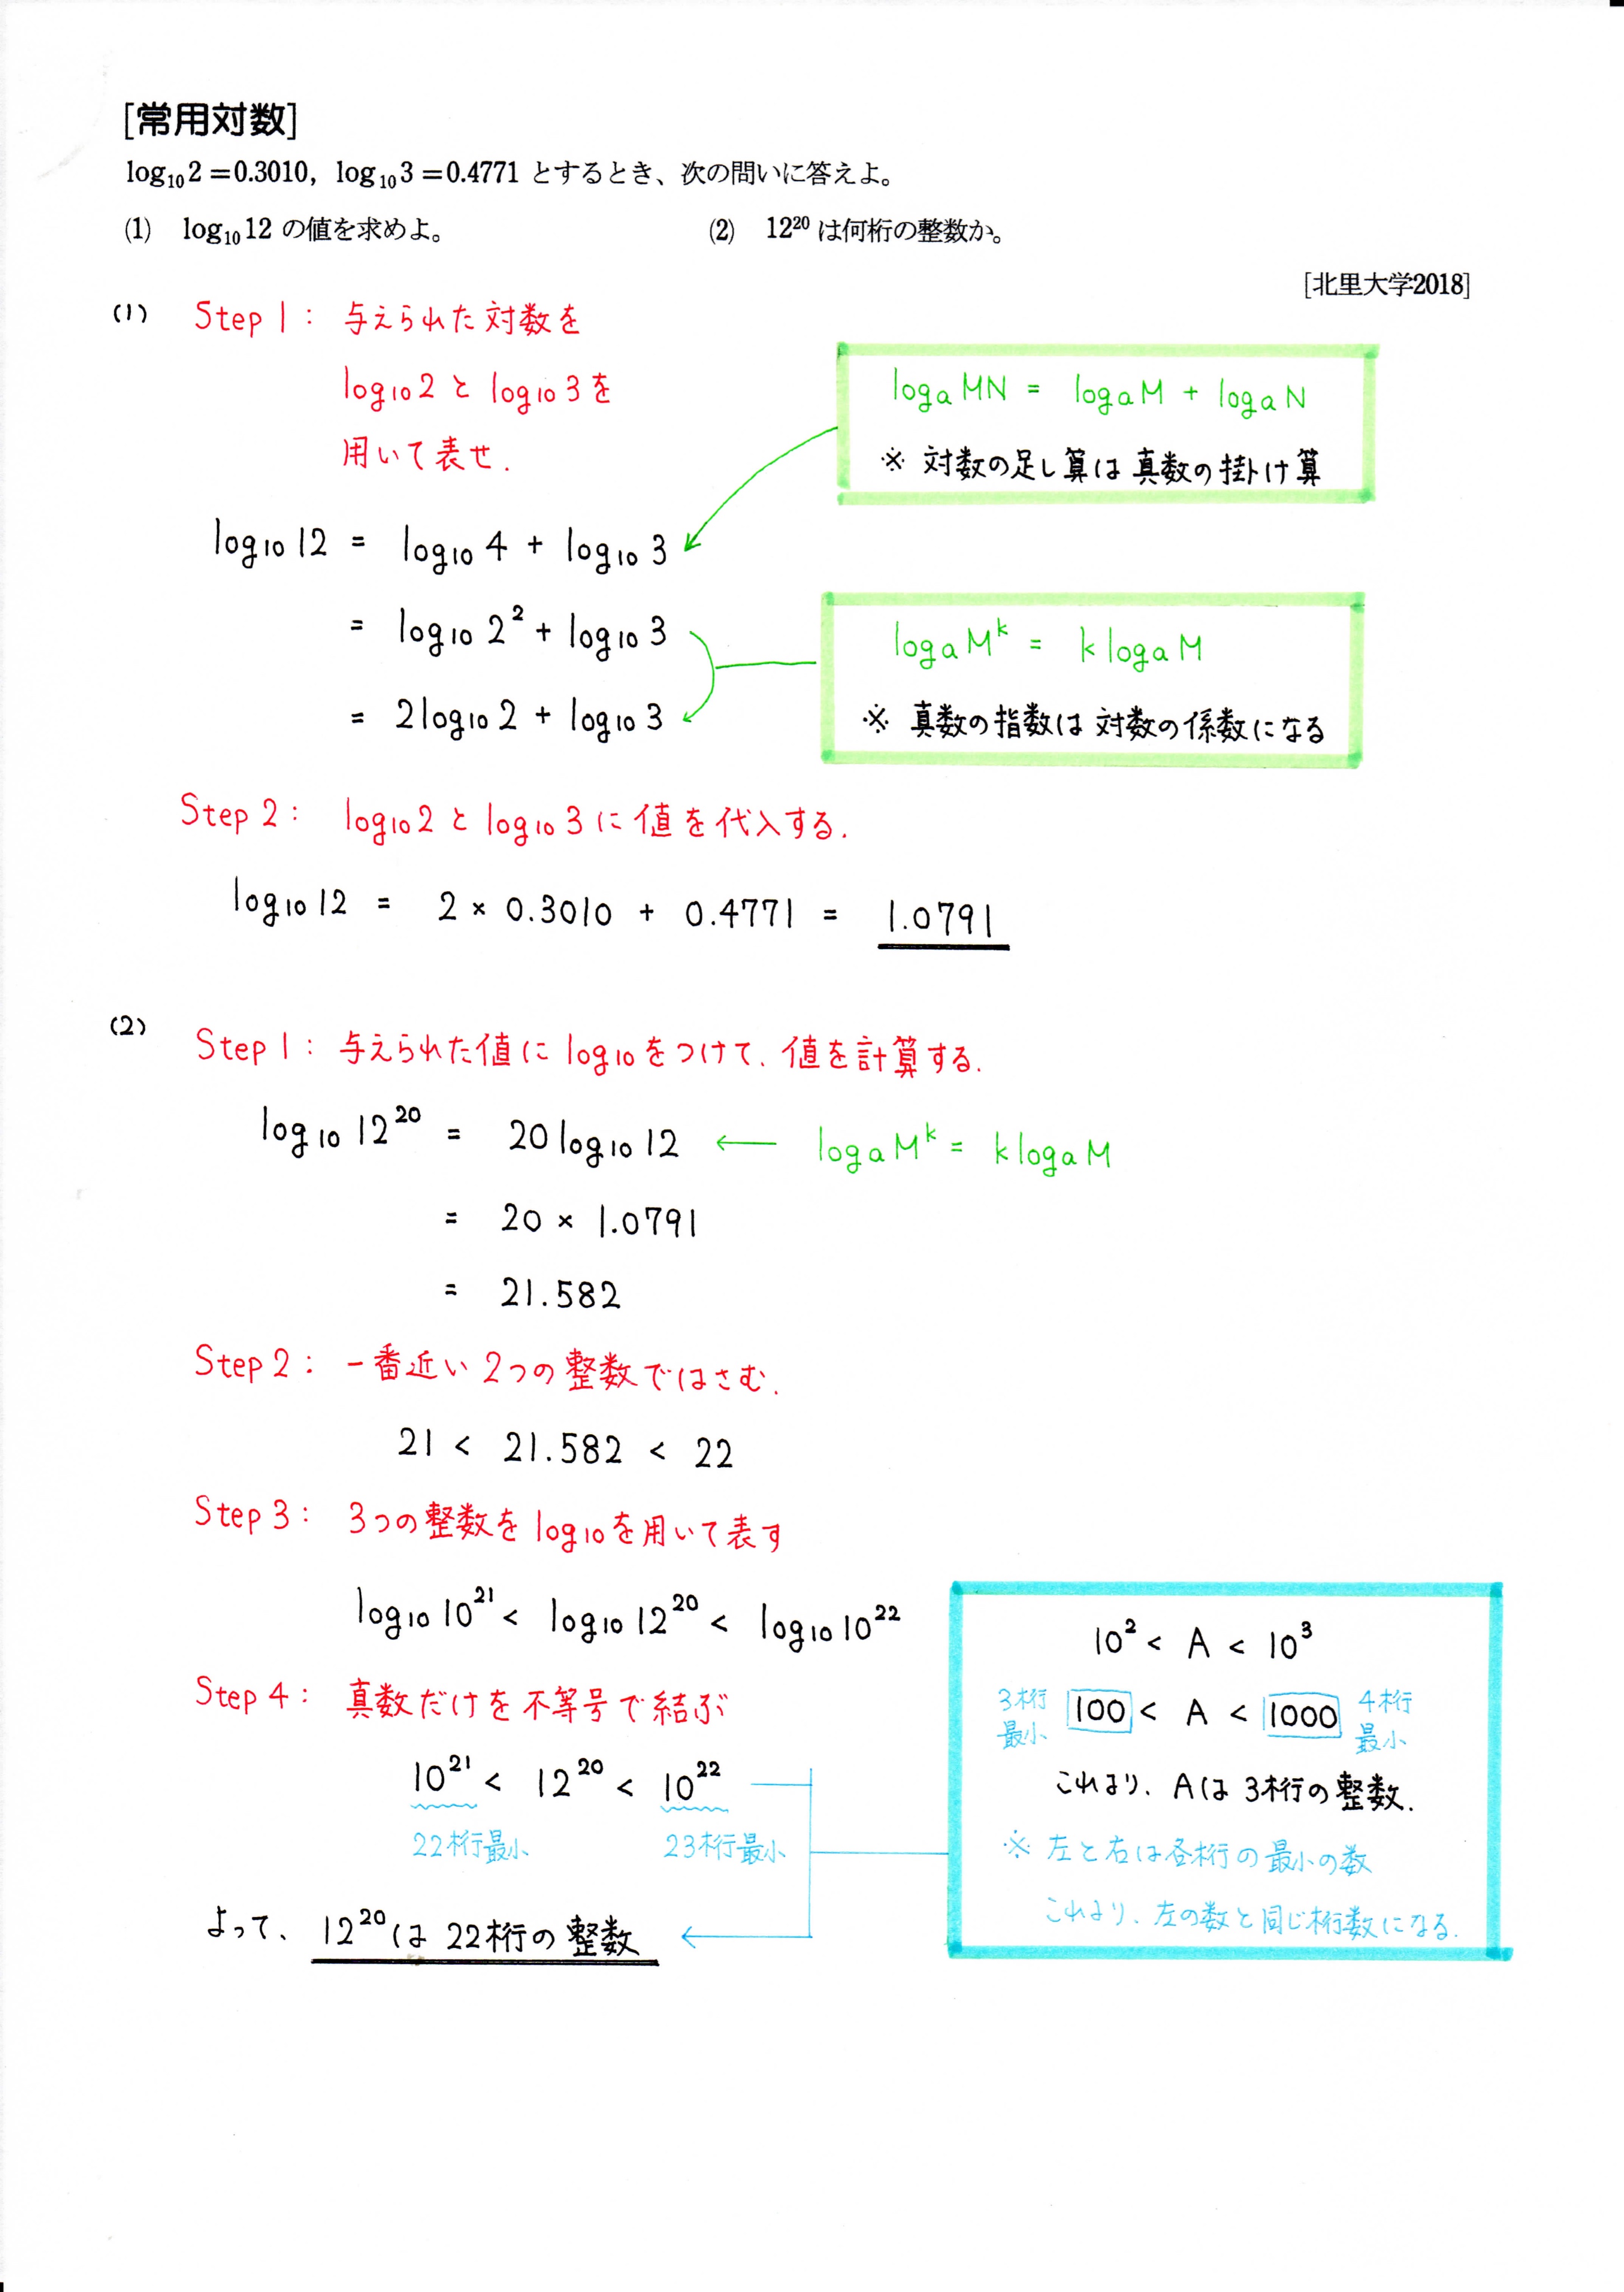 [常用対数]
log₁₀2=0.3010, log₁₀3=0.4771 とするとき、次の問いに答えよ。
(1) log₁₀12 の値を求めよ。 (2) 12²⁰ は何桁の整数か。
[北里大学2018]
(1) Step 1: 与えられた対数を
log₁₀2 と log₁₀3 を
用いて表せ.
logₐMN = logₐM + logₐN
※ 対数の足し算は真数の掛け算
log₁₀12 = log₁₀4 + log₁₀3
= log₁₀2² + log₁₀3
= 2log₁₀2 + log₁₀3
logₐMᵏ = klogₐM
※ 真数の指数は対数の係数になる
Step 2: log₁₀2 と log₁₀3 に値を代入する.
log₁₀12 = 2 × 0.3010 + 0.4771 = 1.0791
(2) Step 1: 与えられた値に log₁₀をつけて、値を計算する.
log₁₀12²⁰ = 20log₁₀12 ← logₐMᵏ = klogₐM
= 20 × 1.0791
= 21.582
Step 2: 一番近い2つの整数ではさむ.
21 < 21.582 < 22
Step 3: 3つの整数を log₁₀を用いて表す
log₁₀10²¹ < log₁₀12²⁰ < log₁₀10²²
Step 4: 真数だけを不等号で結ぶ
10²¹ < 12²⁰ < 10²²
22桁最小 23桁最小
よって、12²⁰は22桁の整数
10² < A < 10³
3桁最小 100 < A < 1000 4桁最小
これより、Aは3桁の整数.
※ 左と右は各桁の最小の数
これより、左の数と同じ桁数になる.